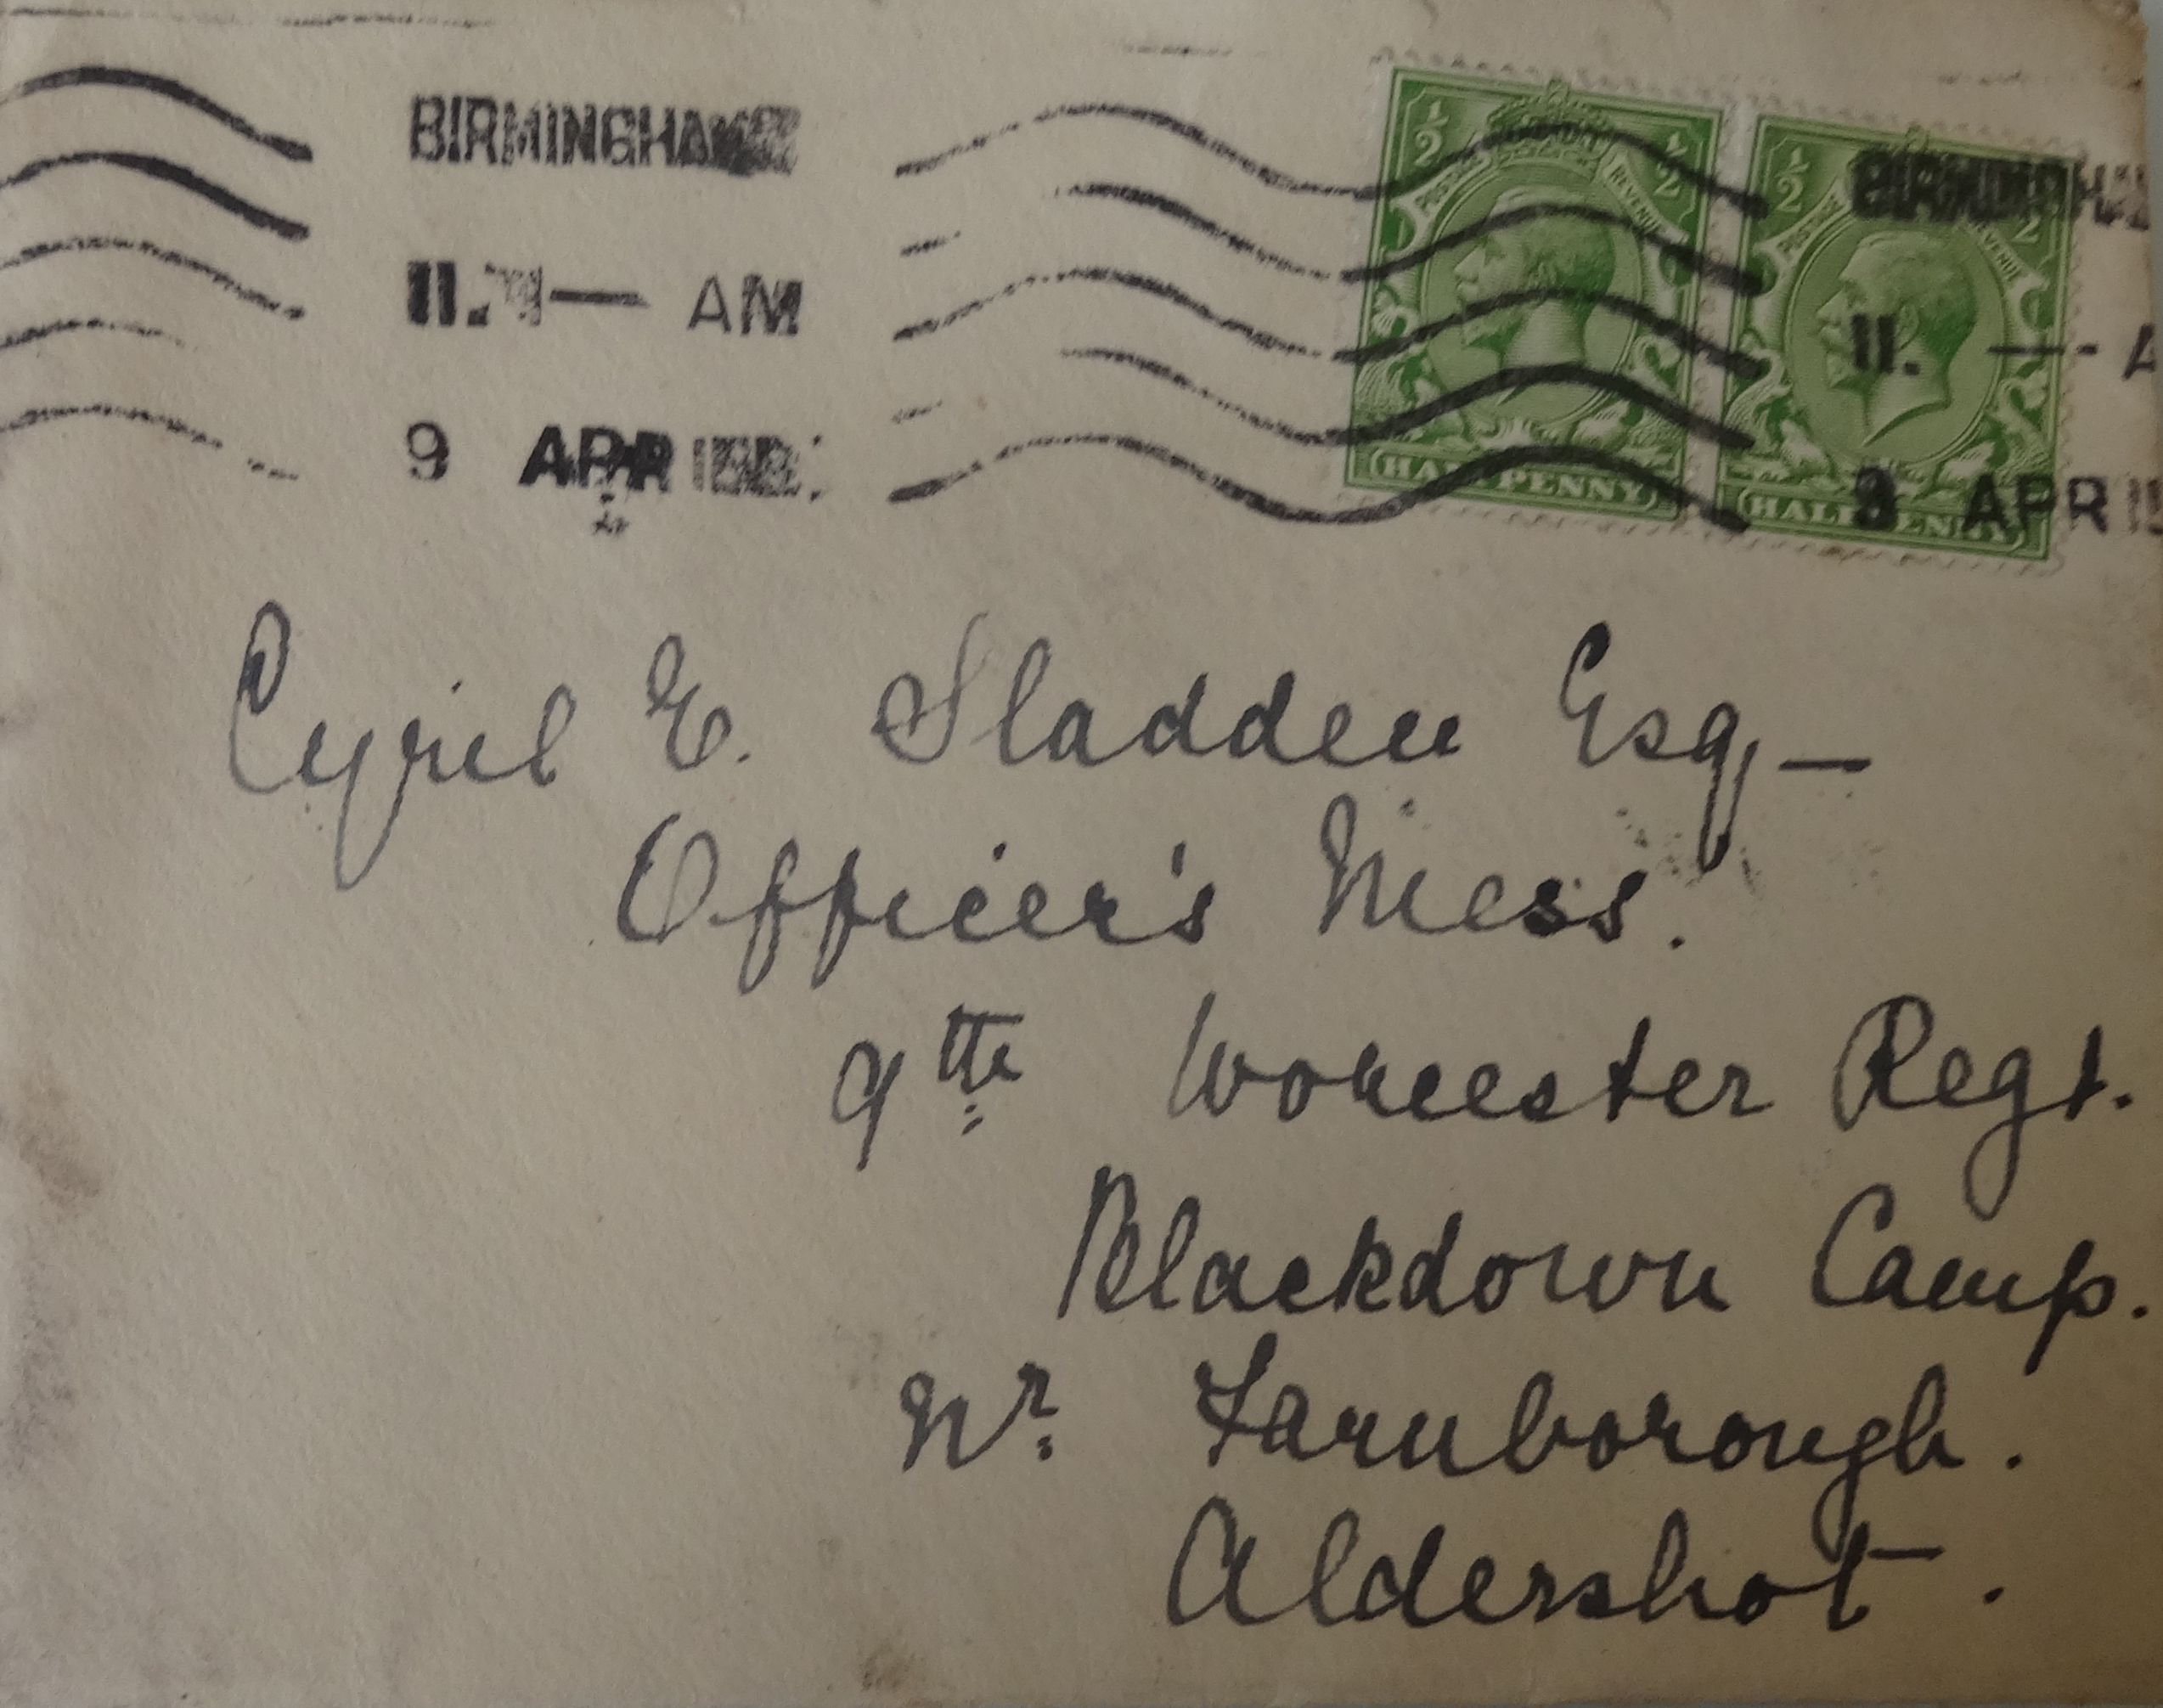 BIRMINGHAM
11. — AM
9 APR
½ ½
POSTAGE REVENUE
HALFPENNY
½ ½
POSTAGE REVENUE
HALFPENNY
BIRMINGHA
11. — A
9 APR
Cyril E. Sladden Esq —
Officer's Mess.
9th Worcester Regt.
Blackdown Camp.
Nr Farnborough.
Aldershot.